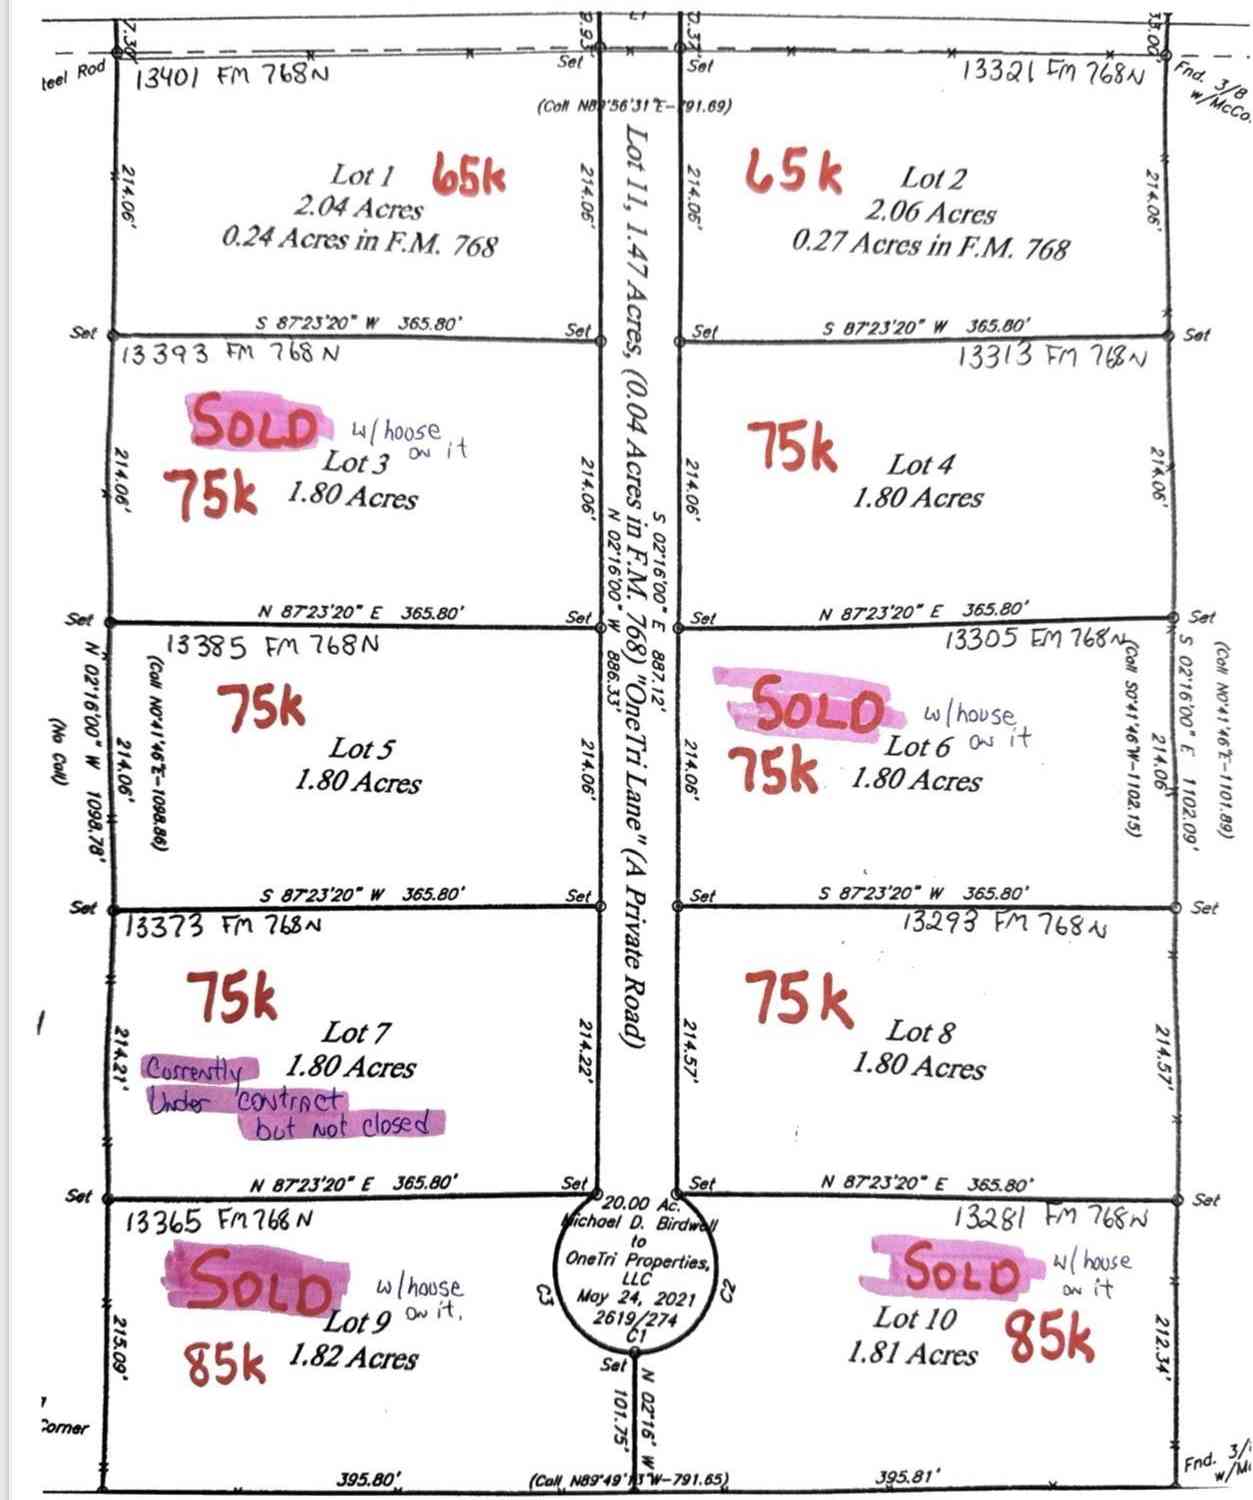 7.30'
9.93'
L1
0.37'
33.00'
teel Rod
13401 FM 768N
Set
Set
13321 FM 768N
Fnd. 3/8
w/McCo.
(Call N89°56'31"E-791.69)
214.06'
Lot 1
65k
2.04 Acres
0.24 Acres in F.M. 768
214.06'
Lot 11, 1.47 Acres, (0.04 Acres in F.M. 768) "OneTri Lane" (A Private Road)
214.06'
65k
Lot 2
2.06 Acres
0.27 Acres in F.M. 768
214.06'
Set
S 87°23'20" W 365.80'
Set
Set
S 87°23'20" W 365.80'
Set
13393 FM 768N
13313 FM 768N
SOLD
w/hoose
on it
Lot 3
75k
1.80 Acres
214.06'
214.06'
N 02°16'00" W 886.33'
S 02°16'00" E 887.12'
214.06'
75k
Lot 4
1.80 Acres
214.06'
Set
N 87°23'20" E 365.80'
Set
Set
N 87°23'20" E 365.80'
Set
13385 FM 768N
13305 FM 768N
(No Call)
N 02°16'00" W 1098.78'
214.06'
(Call N0°41'46"E-1098.86)
75k
Lot 5
1.80 Acres
214.06'
214.06'
SOLD
w/house
on it
Lot 6
75k
1.80 Acres
(Call S0°41'46"W-1102.15)
214.06'
S 02°16'00" E 1102.09'
(Call N0°41'46"E-1101.89)
Set
S 87°23'20" W 365.80'
Set
Set
S 87°23'20" W 365.80'
Set
13373 FM 768N
13293 FM 768N
75k
Lot 7
1.80 Acres
Corrently
Under contract
but not closed
214.21'
214.22'
214.57'
75k
Lot 8
1.80 Acres
214.57'
Set
N 87°23'20" E 365.80'
Set
Set
N 87°23'20" E 365.80'
Set
13365 FM 768N
13281 FM 768N
20.00 Ac.
Michael D. Birdwell
to
OneTri Properties,
LLC
May 24, 2021
2619/274
C1
C3
C2
SOLD
w/house
on it.
Lot 9
85k
1.82 Acres
215.09'
SOLD
w/house
on it
Lot 10
85k
1.81 Acres
212.34'
Set
N 02°16' W
101.75'
Corner
Fnd. 3/
395.80'
(Call N89°49'13"W-791.65)
395.81'